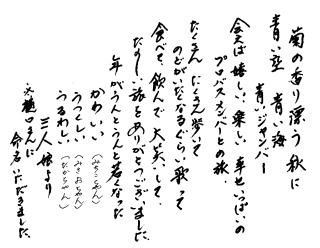 菊の香り漂う秋に
青い空 青い海
青いジャンパー
会えば嬉しい楽しい 幸せいっぱいの
プロバスメンバーとの旅
たくさんたくさん歩いて
のどがいたくなるぐらい歌って
食べて、飲んで 大笑いして
たのしい旅をありがとうございました
年がうんとうんと若くなった
かわいい(みちこちゃん)
うつくしい(みさおちゃん)
うるわしい(ひがちゃん)
三人娘より
樋口さんに
命名いただきました